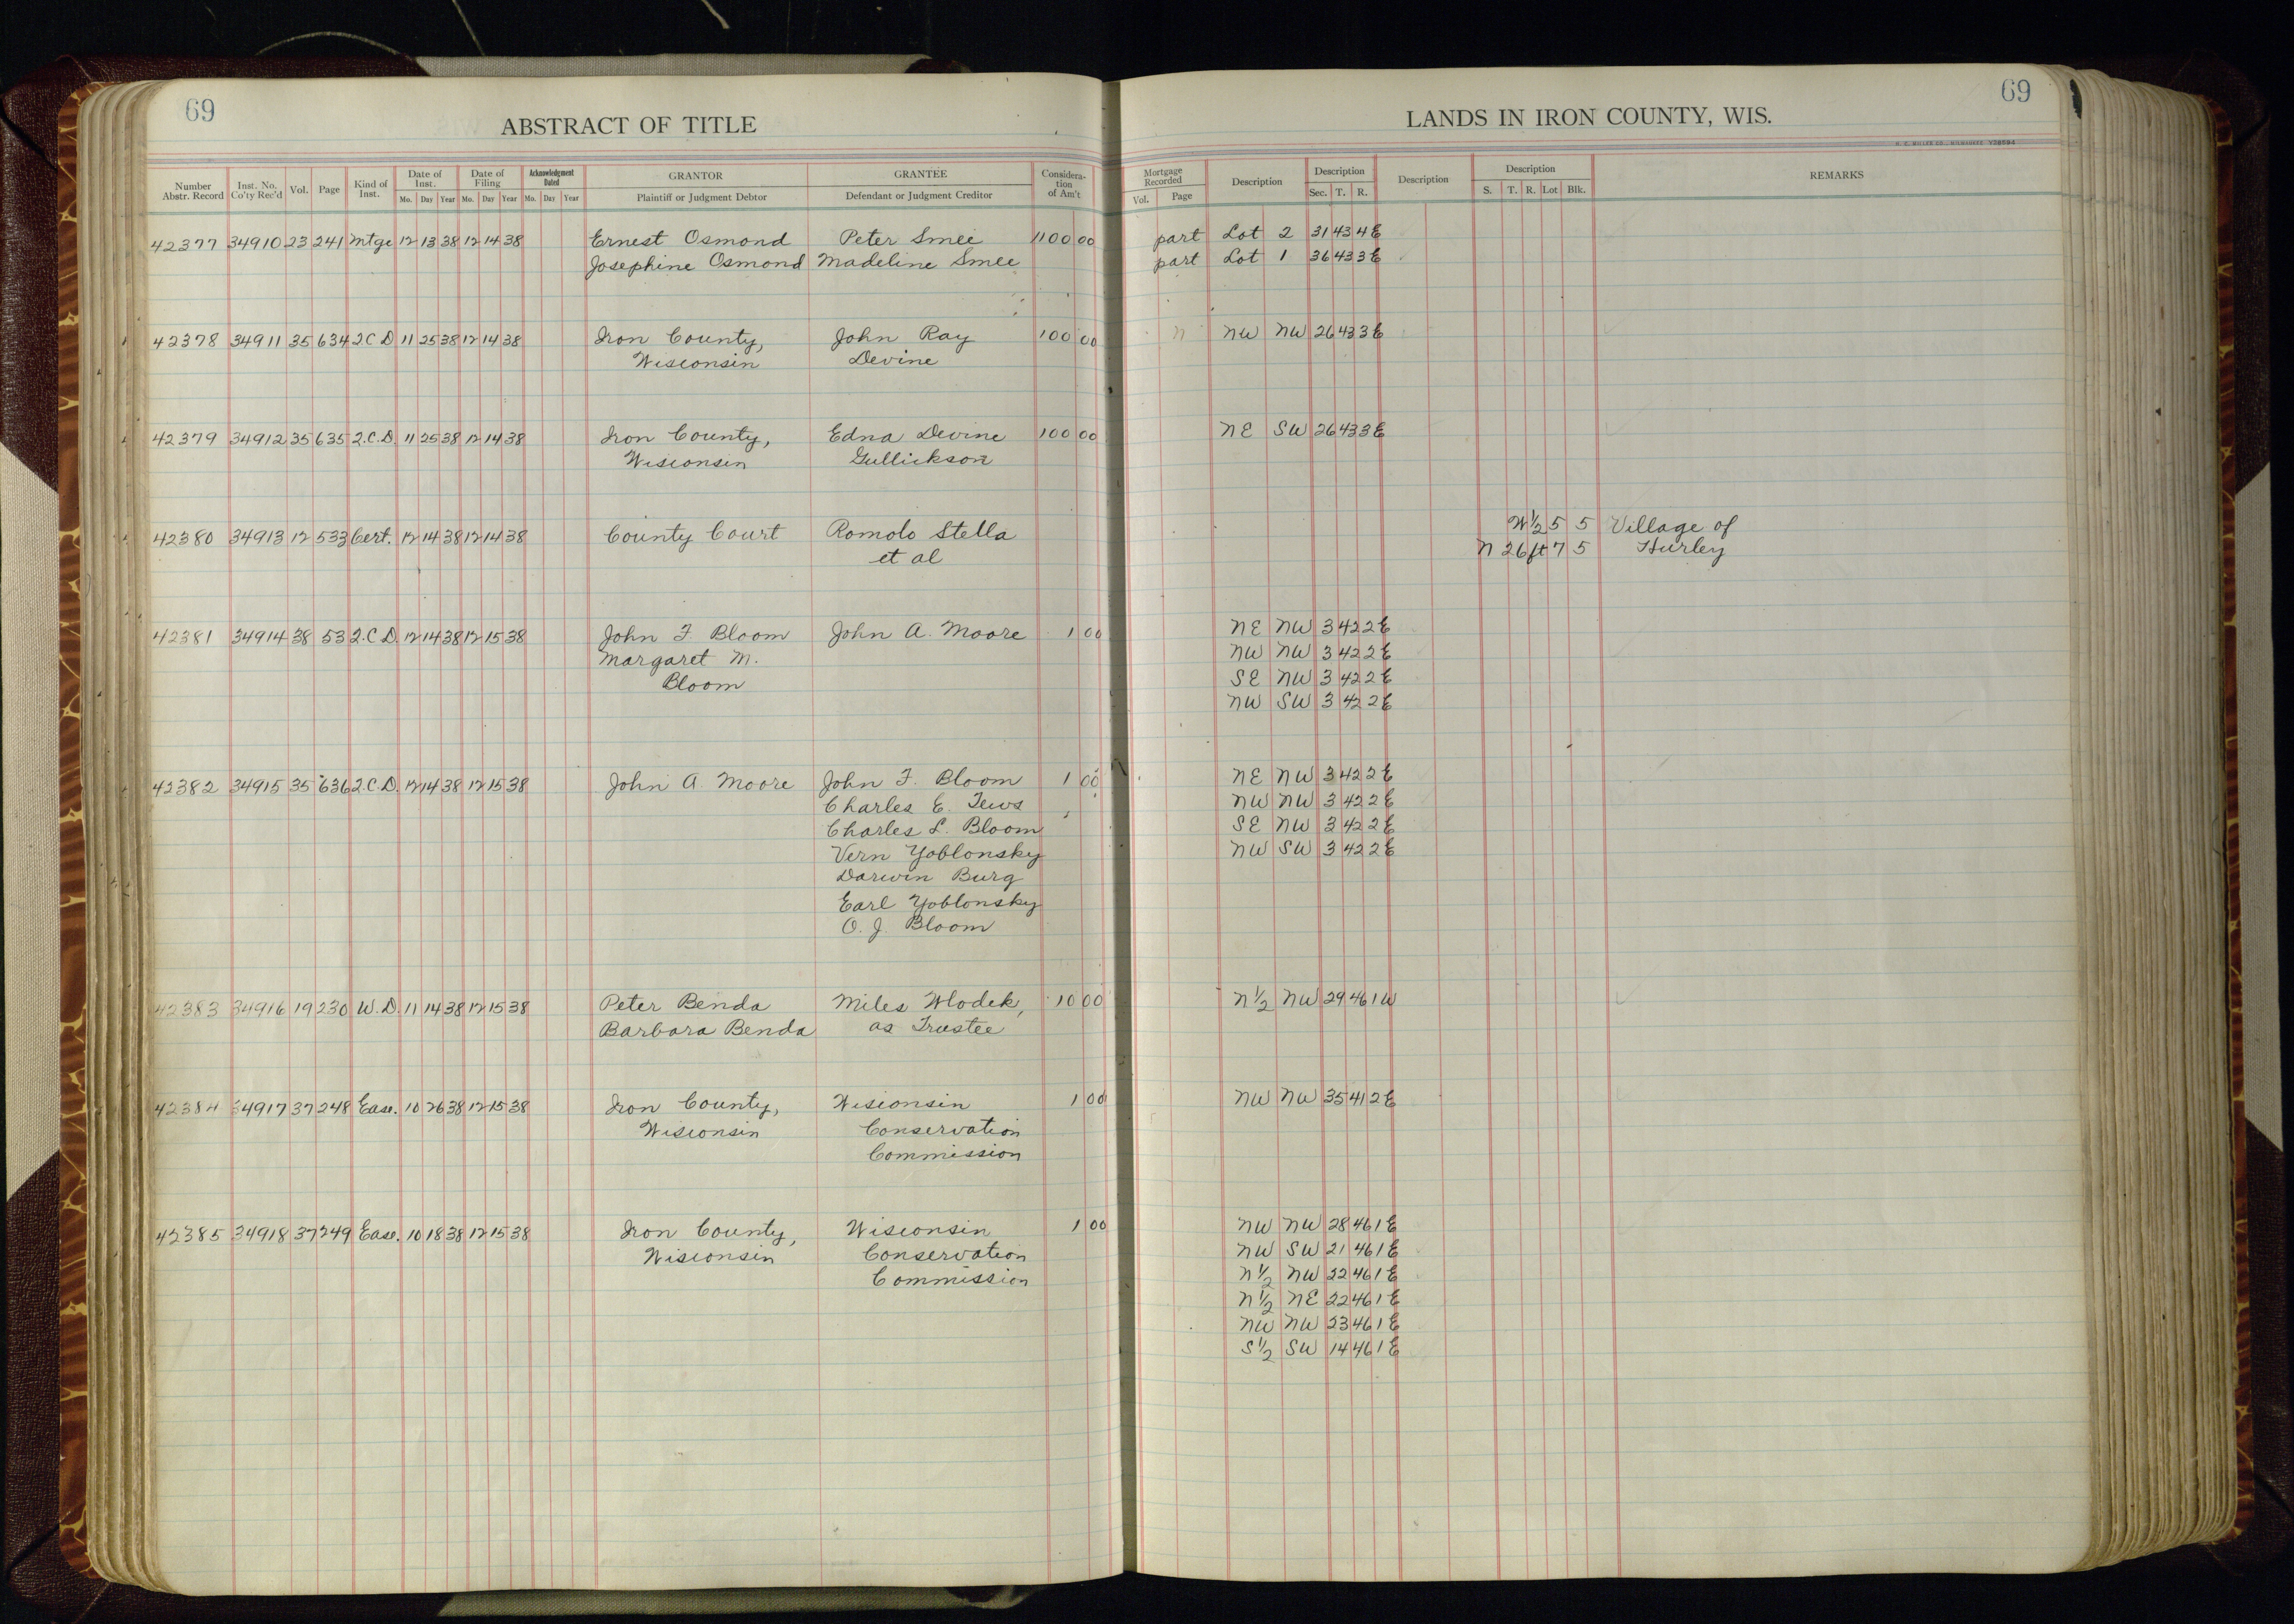 69
ABSTRACT OF TITLE
Number Abstr. Record | Inst. No. Co'ty Rec'd | Vol. | Page | Kind of Inst. | Date of Inst. Mo. Day Year | Date of Filing Mo. Day Year | Acknowledgment Dated Mo. Day Year | GRANTOR Plaintiff or Judgment Debtor | GRANTEE Defendant or Judgment Creditor | Considera-tion of Am't
42377 34910 23 241 Mtge 12 13 38 12 14 38 Ernest Osmond Peter Smee 1100 00
Josephine Osmond Madeline Smee
42378 34911 35 634 2.C.D 11 25 38 12 14 38 Iron County, John Ray 100 00
Wisconsin Devine
42379 34912 35 635 2.C.D. 11 25 38 12 14 38 Iron County, Edna Devine 100 00
Wisconsin Gullickson
42380 34913 12 533 Cert. 12 14 38 12 14 38 County Court Romolo Stella
et al
42381 34914 38 53 2.C.D. 12 14 38 12 15 38 John F. Bloom John A. Moore 1 00
Margaret M.
Bloom
42382 34915 35 636 2.C.D. 12 14 38 12 15 38 John A. Moore John F. Bloom 1 00
Charles E. Tews
Charles L. Bloom
Vern Yoblonsky
Darwin Burg
Earl Yoblonsky
O. J. Bloom
42383 34916 19 230 W.D. 11 14 38 12 15 38 Peter Benda Miles Wlodek, 10 00
Barbara Benda as Trustee
42384 34917 37 248 Ease. 10 26 38 12 15 38 Iron County, Wisconsin 1 00
Wisconsin Conservation
Commission
42385 34918 37 249 Ease. 10 18 38 12 15 38 Iron County, Wisconsin 1 00
Wisconsin Conservation
Commission
69
LANDS IN IRON COUNTY, WIS.
H. C. MILLER CO., MILWAUKEE Y28594
Mortgage Recorded Vol. Page | Description | Description Sec. T. R. | Description | Description S. T. R. Lot Blk. | REMARKS
part Lot 2 31 43 4E
part Lot 1 36 43 3E
NW NW 26 43 3E
NE SW 26 43 3E
W½ 5 5 Village of
N 26 ft 7 5 Hurley
NE NW 3 42 2E
NW NW 3 42 2E
SE NW 3 42 2E
NW SW 3 42 2E
NE NW 3 42 2E
NW NW 3 42 2E
SE NW 3 42 2E
NW SW 3 42 2E
N½ NW 29 46 1W
NW NW 35 41 2E
NW NW 28 46 1E
NW SW 21 46 1E
N½ NW 22 46 1E
N½ NE 22 46 1E
NW NW 23 46 1E
S½ SW 14 46 1E